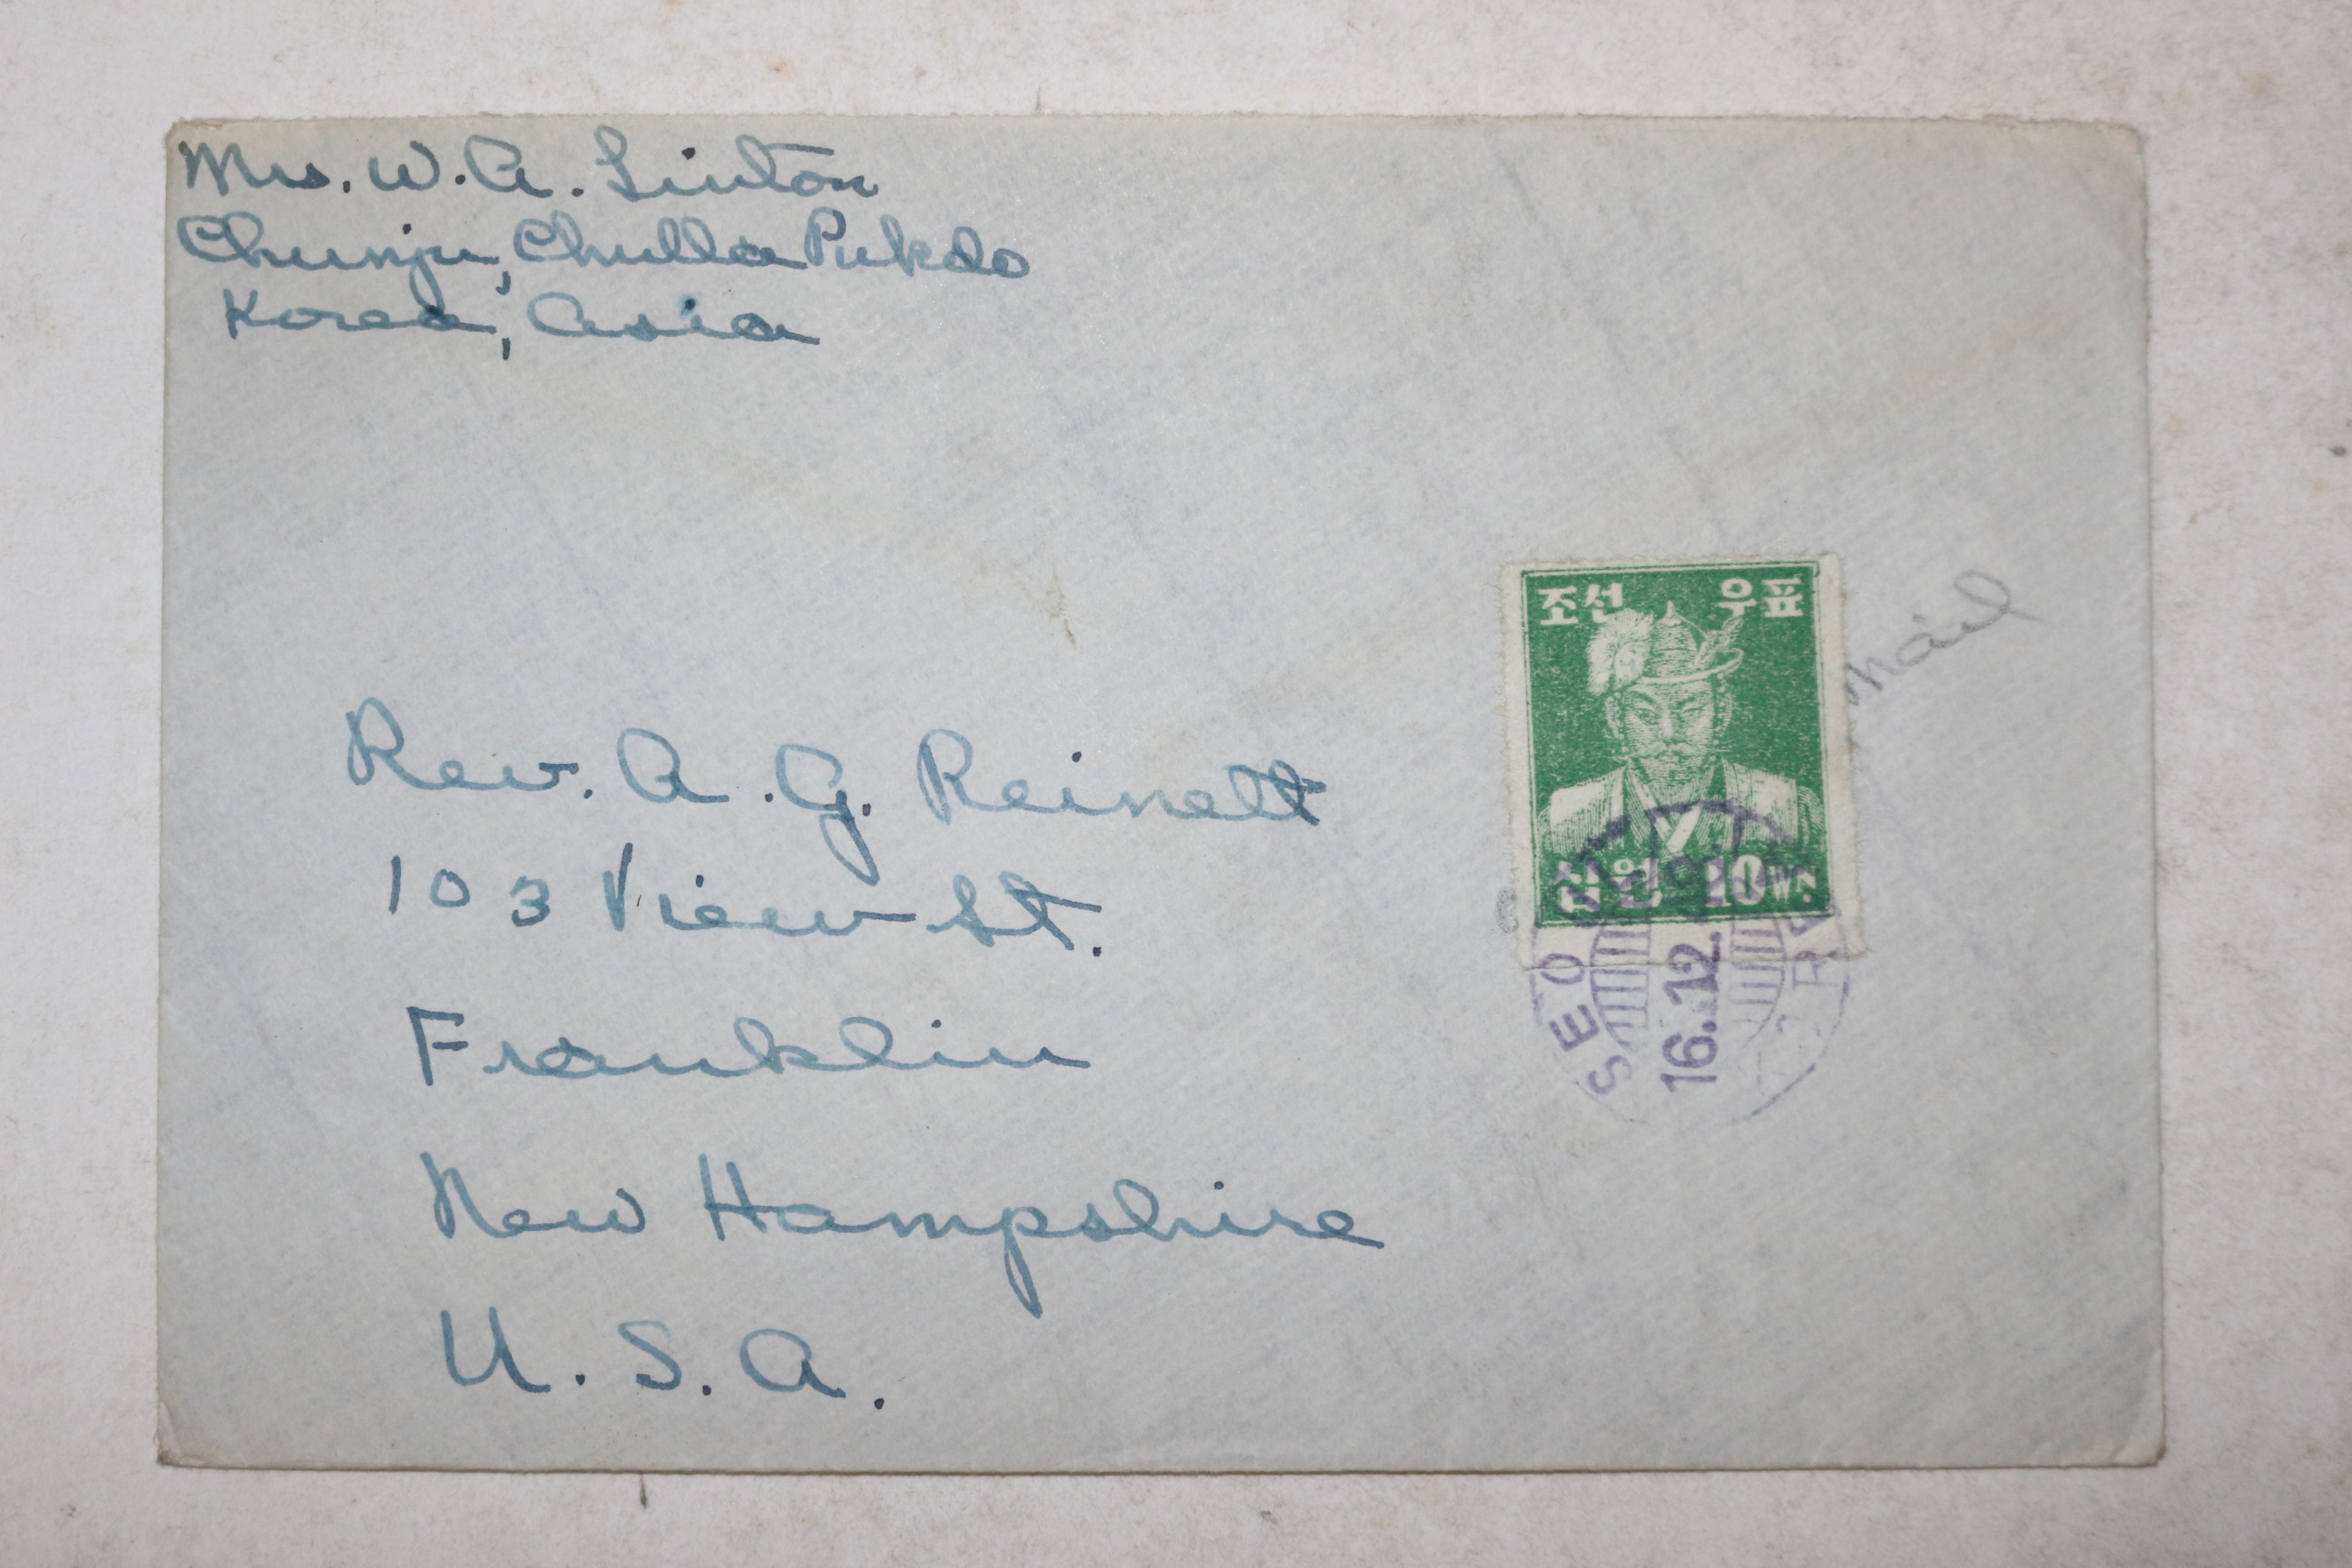 Mrs. W. A. Linton
Chunju, Chulla Pukdo
Korea, Asia
조선 우표
mail
십원 10 WN.
SEOUL
16.12
Rev. A. G. Reinett
103 View St.
Franklin
New Hampshire
U. S. A.